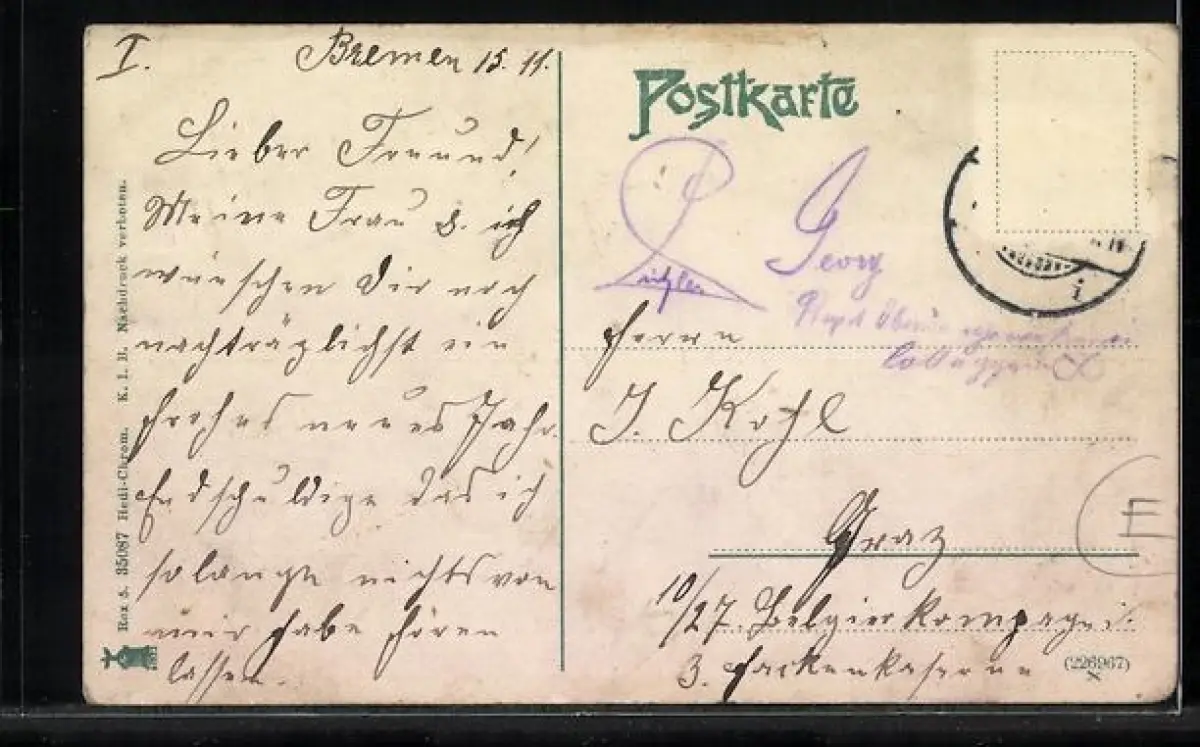 I.
Bremen 15. 11.
Lieber Freund!
Meine Frau & ich
wünschen Dir noch
nachträglichst ein
frohes neues Jahr.
Endschuldige das ich
solange nichts von
mir habe hören
lassen.
Rox 5. 35087 Hedi-Chrom. K. I. B. Nachdruck verboten.
Postkarte
Georg
Herrn
J. Kohl
Graz
10/27. Belgierkompagni.
3. Hackenkaserne
(226967)
E